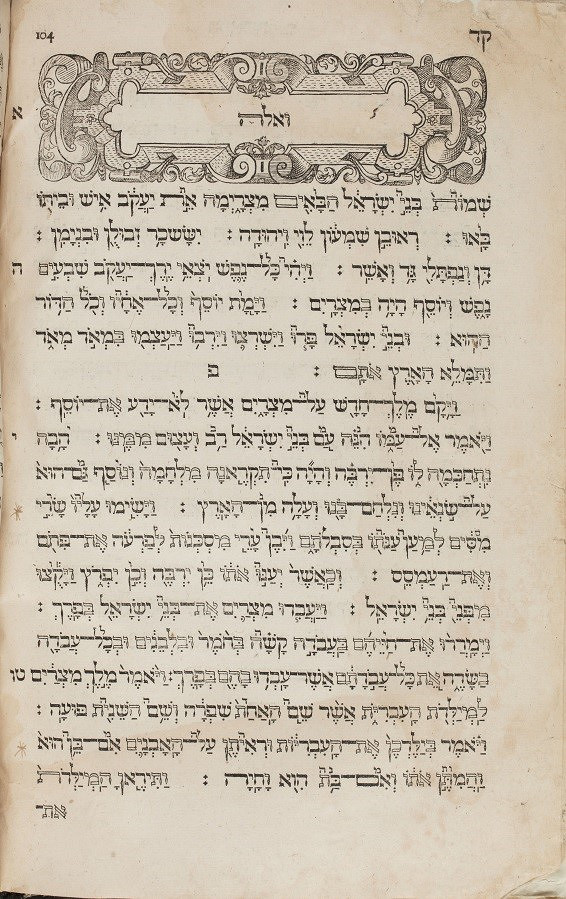 104 קד
ואלה
א
שְׁמוֹת בְּנֵי יִשְׂרָאֵל הַבָּאִים מִצְרָיְמָה אֵת יַעֲקֹב אִישׁ וּבֵיתוֹ
בָּאוּ : רְאוּבֵן שִׁמְעוֹן לֵוִי וִיהוּדָה : יִשָּׂשכָר זְבוּלֻן וּבִנְיָמִן :
דָּן וְנַפְתָּלִי גָּד וְאָשֵׁר : וַיְהִי כָּל־נֶפֶשׁ יֹצְאֵי יֶרֶךְ־יַעֲקֹב שִׁבְעִים ה
נָפֶשׁ וְיוֹסֵף הָיָה בְמִצְרָיִם : וַיָּמָת יוֹסֵף וְכָל־אֶחָיו וְכֹל הַדּוֹר
הַהוּא : וּבְנֵי יִשְׂרָאֵל פָּרוּ וַיִּשְׁרְצוּ וַיִּרְבּוּ וַיַּעַצְמוּ בִּמְאֹד מְאֹד
וַתִּמָּלֵא הָאָרֶץ אֹתָם : פ
וַיָּקָם מֶלֶךְ־חָדָשׁ עַל־מִצְרָיִם אֲשֶׁר לֹא־יָדַע אֶת־יוֹסֵף :
וַיֹּאמֶר אֶל־עַמּוֹ הִנֵּה עַם בְּנֵי יִשְׂרָאֵל רַב וְעָצוּם מִמֶּנּוּ : הָבָה י
נִתְחַכְּמָה לוֹ פֶּן־יִרְבֶּה וְהָיָה כִּי־תִקְרֶאנָה מִלְחָמָה וְנוֹסַף גַּם־הוּא
עַל־שֹׂנְאֵינוּ וְנִלְחַם־בָּנוּ וְעָלָה מִן־הָאָרֶץ : וַיָּשִׂימוּ עָלָיו שָׂרֵי
מִסִּים לְמַעַן עַנֹּתוֹ בְּסִבְלֹתָם וַיִּבֶן עָרֵי מִסְכְּנוֹת לְפַרְעֹה אֶת־פִּתֹם
וְאֶת־רַעַמְסֵס : וְכַאֲשֶׁר יְעַנּוּ אֹתוֹ כֵּן יִרְבֶּה וְכֵן יִפְרֹץ וַיָּקֻצוּ
מִפְּנֵי בְּנֵי יִשְׂרָאֵל : וַיַּעֲבִדוּ מִצְרַיִם אֶת־בְּנֵי יִשְׂרָאֵל בְּפָרֶךְ :
וַיְמָרְרוּ אֶת־חַיֵּיהֶם בַּעֲבֹדָה קָשָׁה בְּחֹמֶר וּבִלְבֵנִים וּבְכָל־עֲבֹדָה
בַּשָּׂדֶה אֵת כָּל־עֲבֹדָתָם אֲשֶׁר־עָבְדוּ בָהֶם בְּפָרֶךְ : וַיֹּאמֶר מֶלֶךְ מִצְרַיִם טו
לַמְיַלְּדֹת הָעִבְרִיֹּת אֲשֶׁר שֵׁם הָאַחַת שִׁפְרָה וְשֵׁם הַשֵּׁנִית פּוּעָה :
וַיֹּאמֶר בְּיַלֶּדְכֶן אֶת־הָעִבְרִיּוֹת וּרְאִיתֶן עַל־הָאָבְנָיִם אִם־בֵּן הוּא
וַהֲמִתֶּן אֹתוֹ וְאִם־בַּת הִוא וָחָיָה : וַתִּירֶאןָ הַמְיַלְּדֹת
אֶת־